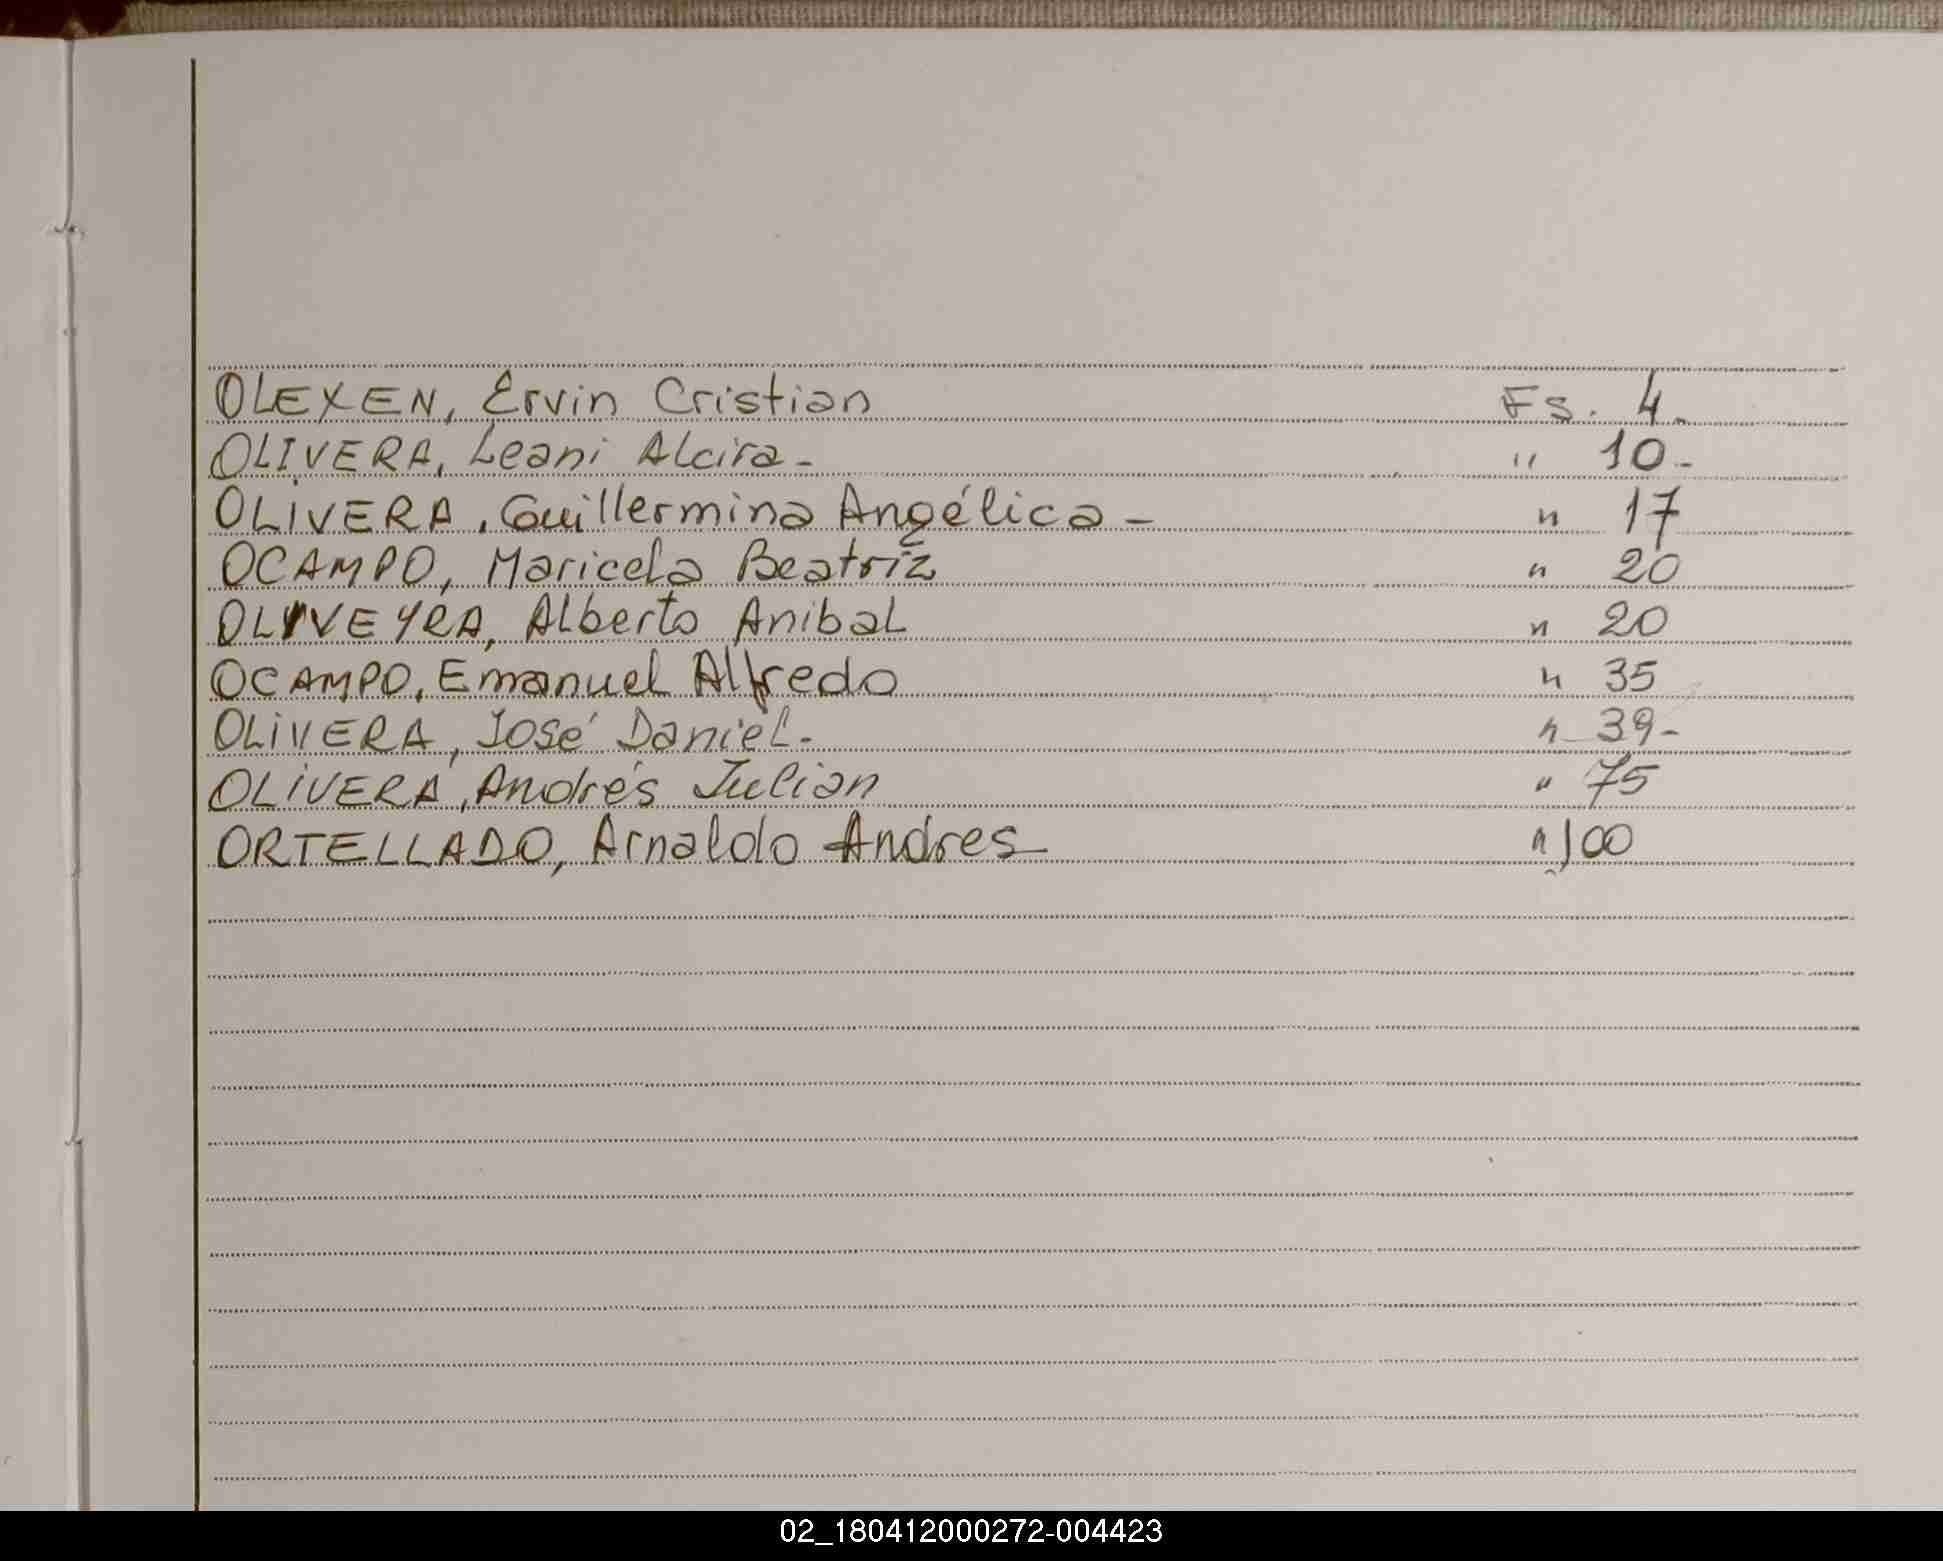 OLEXEN, Ervin Cristian Fs. 4.
OLIVERA, Leani Alcira - " 10.-
OLIVERA, Guillermina Angélica - " 17
OCAMPO, Maricela Beatriz " 20
OLIVEYRA, Alberto Anibal " 20
OCAMPO, Emanuel Alfredo " 35
OLIVERA, José Daniel. " 39-
OLIVERA, Andrés Julian " 75
ORTELLADO, Arnaldo Andres " 100
02_180412000272-004423